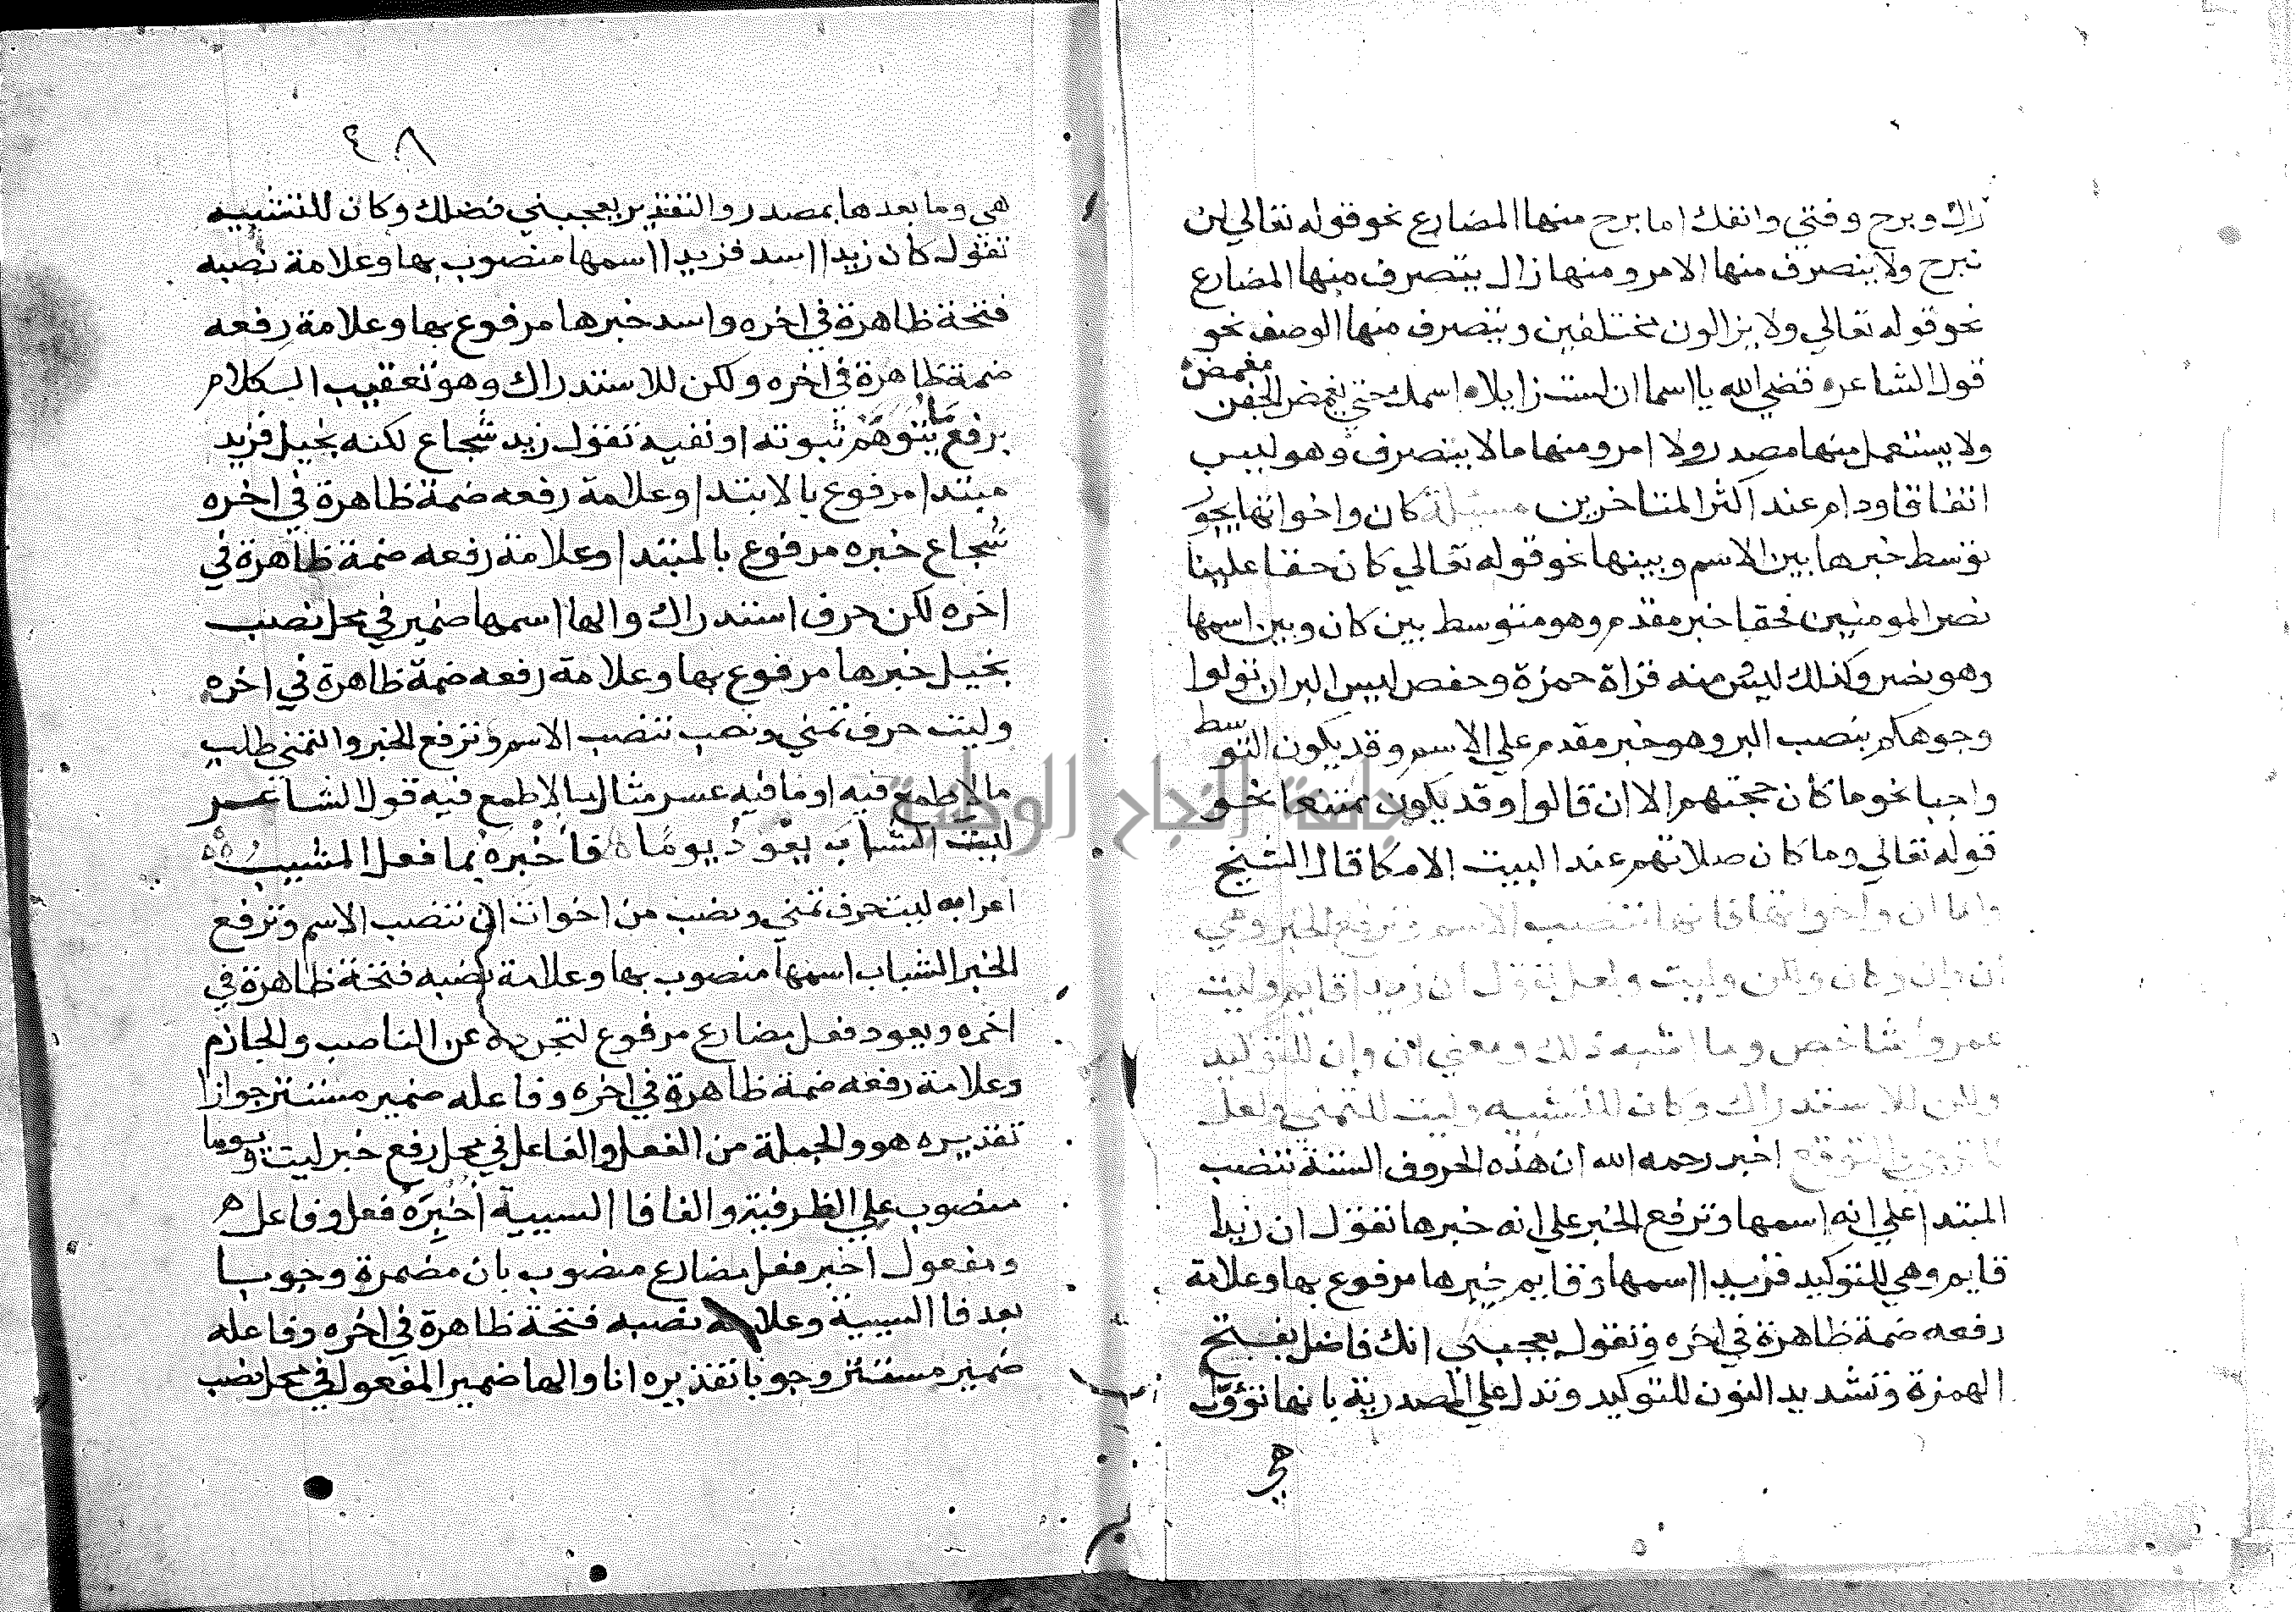 زال وبرح وفتي وانفك اما برح منها المضارع نحو قوله تعالي لن
نبرح ولا يتصرف منها الامر ومنها زال يتصرف منها المضارع
نحو قوله تعالي ولا يزالون مختلفين ويتصرف منها الوصف نحو
قول الشاعره قضي الله يا اسما ان لست زايلاه احبك حتي يغمض الجفن مغمض
ولا يستعمل منها مصدر ولا امر ومنها ما لا يتصرف وهو ليس
اتفاقا ودام عند اكثر المتاخرين مسئلة كان واخواتها يجوز
توسط خبرها بين الاسم وبينها نحو قوله تعالي كان حقا علينا
نصر المومنين فحقا خبر مقدم وهو متوسط بين كان وبين اسمها
وهو نصر وكذلك ليس منه قراة حمزة وحفص ليس البر ان تولوا
وجوهكم بنصب البر وهو خبر مقدم علي الاسم وقد يكون التوسط
واجبا نحو ما كان حجتهم الا ان قالوا وقد يكون ممتنعا نحو
قوله تعالي وما كان صلاتهم عند البيت الا مكا قال الشيخ
واما ان واخواتها فانها تنصب الاسم وترفع الخبر وهي
ان وان وكان ولكن وليت ولعل تقول ان زيدا قايم وليت
عمروا شاخص وما اشبه ذلك ومعني ان وان للتوكيد
ولكن للاستدراك وكان للتشبيه وليت للتمني ولعل
للترجي والتوقع اخبر رحمه الله ان هذه الحروف الستة تنصب
المبتدا علي انه اسمها وترفع الخبر علي انه خبرها تقول ان زيدا
قايم وهي للتوكيد فزيد ااسمها وقايم خبرها مرفوع بها وعلامة
رفعه ضمة ظاهرة في اخره وتقول يعجبني انك فاضل بفتح
الهمزة وتشديد النون للتوكيد وتدل علي المصدرية بانها تؤول
هي
٤٨
هي وما بعدها بمصدر والتقدير يعجبني فضلك وكان للتشبيه
تقول كان زيدا اسد فزيد ااسمها منصوب بها وعلامة نصبه
فتحة ظاهرة في اخره واسد خبرها مرفوع بها وعلامة رفعه
ضمة ظاهرة في اخره ولكن للاستدراك وهو تعقيب الكلام
برفع ما يتوهم ثبوته او نفيه تقول زيد شجاع لكنه بخيل فزيد
مبتدا مرفوع بالابتدا وعلامة رفعه ضمة ظاهرة في اخره
شجاع خبره مرفوع بالمبتدا وعلامة رفعه ضمة ظاهرة في
اخره لكن حرف استدراك والها اسمها ضمير في محل نصب
بخيل خبرها مرفوع بها وعلامة رفعه ضمة ظاهرة في اخره
وليت حرف تمني ونصب تنصب الاسم وترفع الخبر والتمني طلب
ما لا طمع فيه او ما فيه عسر مثال ما لا طمع فيه قول الشاعر
ليت الشباب يعود يوما ه فاخبره بما فعل المشيب ه
اعرابه ليت حرف تمني ونصب من اخوات ان تنصب الاسم وترفع
الخبر الشباب اسمها منصوب بها وعلامة نصبه فتحة ظاهرة في
اخره ويعود فعل مضارع مرفوع لتجرده عن الناصب والجازم
وعلامة رفعه ضمة ظاهرة في اخره وفاعله ضمير مستتر جوازا
تقديره هو والجملة من الفعل والفاعل في محل رفع خبر ليت ويوما
منصوب علي الظرفية والفا فا السببية اخبره فعل وفاعل
ومفعول اخبر فعل مضارع منصوب بان مضمرة وجوبا
بعد فا السببية وعلامة نصبه فتحة ظاهرة في اخره وفاعله
ضمير مستتر وجوبا تقديره انا والها ضمير المفعول في محل نصب
جامعة النجاح الوطنية